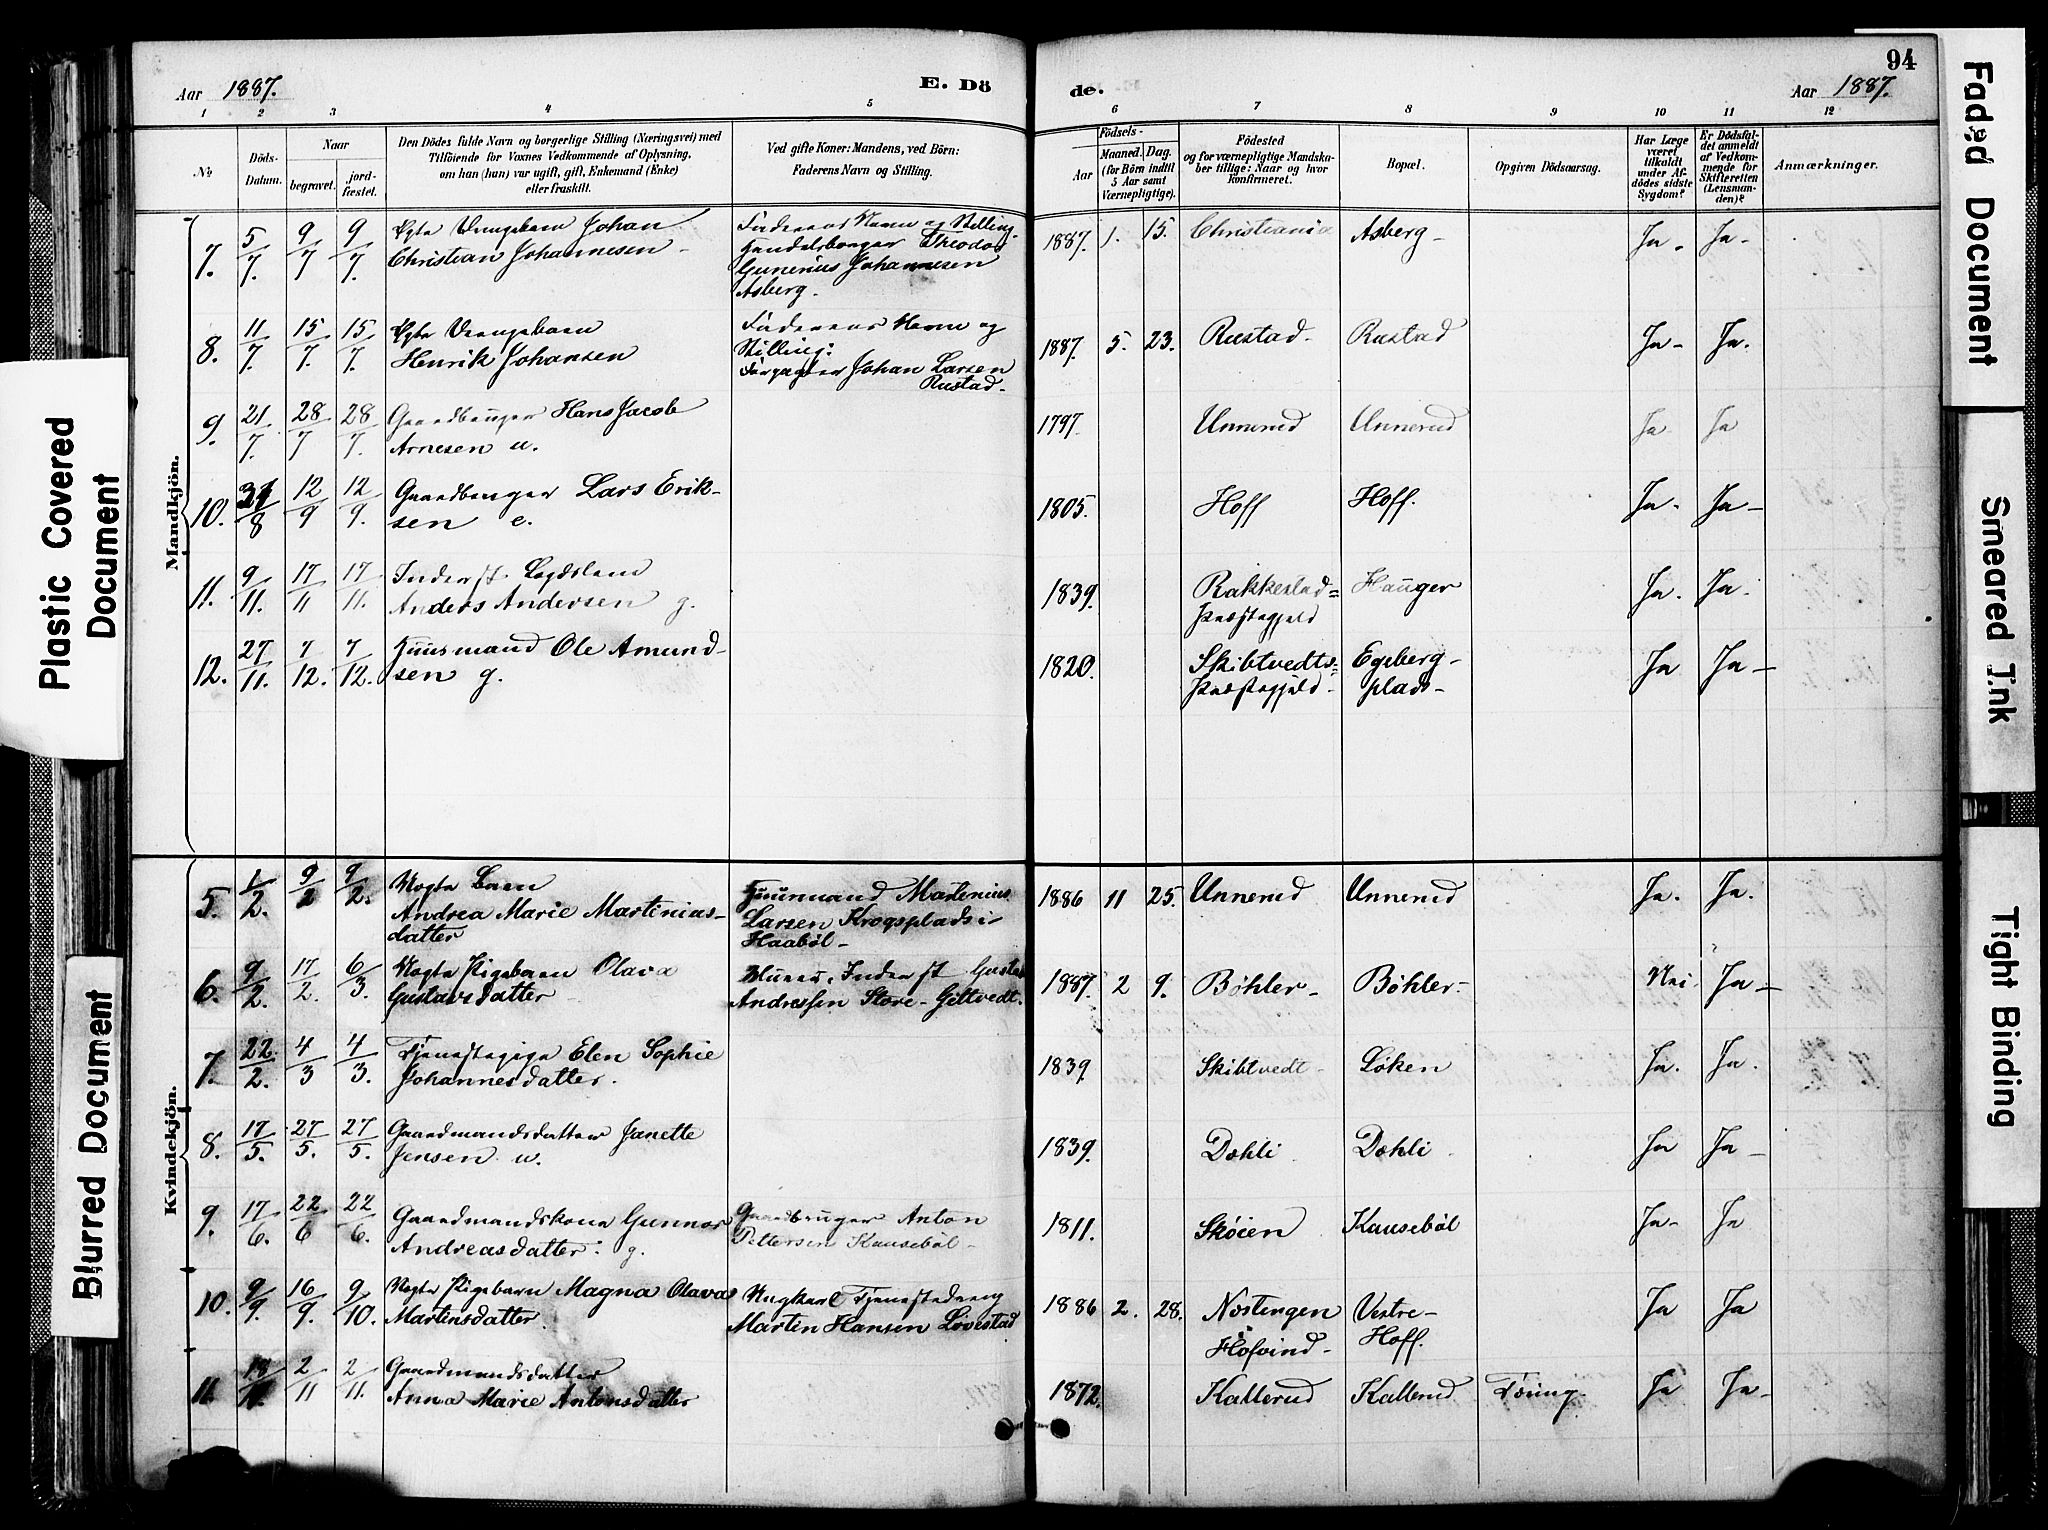 Aar 1887.
E. Dö
de.
94
Aar 1887.
1 2 3 4 5 6 7 8 9 10 11 12
No.
Döds-Datum.
Naar
begravet.
jord-fæstet.
Den Dödes fulde Navn og borgerlige Stilling (Næringsvei) med
Tilföiende for Voxnes Vedkommende af Oplysning,
om han (hun) var ugift, gift, Enkemand (Enke)
eller fraskilt.
Ved gifte Koner: Mandens, ved Börn:
Faderens Navn og Stilling.
Födsels-
Aar
Maaned.
Dag.
(for Börn indtil
5 Aar samt
Værnepligtige).
Födested
og for værnepligtige Mandska-
ber tillige: Naar og hvor
konfirmeret.
Bopæl.
Opgiven Dödsaarsag.
Har Læge
været
tilkaldt
under Af-
dödes sidste
Sygdom?
Er Dödsfal-
det anmeldt
af Vedkom-
mende for
Skifteretten
(Lensman-
den)?
Anmærkninger.
Mandkjön.
7. 5/7. 9/7 9/7. Ægte Drengebarn Johan
Christian Johannesen
Faderens Navn og Stilling
Handelsborger Theodor
Gunerius Johannesen
Asberg.
1887. 1. 15. Christiania Asberg Ja. Ja
8. 11/7. 15/7. 15/7. Ægte Drengebarn
Henrik Johansen
Faderens Navn og
Stilling:
Forpagter Johan Larsen
Rustad.
1887. 5. 23. Rustad. Rustad Ja Ja.
9. 21/7. 28/7 28/7. Gaardbruger Hans Jacob
Arnesen u.
1797. Unnerud Unnerud Ja Ja
10. 31/8 12/9 12/9. Gaardbruger Lars Erik-
sen e.
1805. Hoff Hoff. Ja. Ja
11. 9/11. 17/11 17/11. Inderst Lægdslem
Anders Andersen g.
1839. Rakkestad=
Præstegjeld
Hauger Ja. Ja.
12. 27/11. 7/12. 7/12. Huusmand Ole Amund-
sen g.
1820. Skibtvedts=
Præstegjeld.
Egeberg-
plads
Ja Ja
Kvindekjön.
5. 1/2. 9/2 9/2. Uægte Barn
Andrea Marie Martinias-
datter
Huusmand Martenius
Larsen Krogsplads i
Haabøl
1886 11 25. Unnerud Unnerud Ja. Ja.
6. 9/2. 17/2. 6/3. Uægte Pigebarn Olava
Gustavsdatter
Inderst Gustav
Andressen Store-Gjltvedt.
1887. 2 9. Bøhler Bøhler Nei. Ja
7. 22/2. 4/3 4/3. Tjenestepige Elen Sophie
Johannesdatter.
1839. Skibtvedt Løken Ja. Ja.
8. 17/5. 27/5. 27/5. Gaardmandsdatter Janette
Jensen u.
1839. Dæhli Dæhli Ja Ja
9. 17/6. 22/6 22/6. Gaardmandskone Gunnor
Andreasdatter. g.
Gaardbruger Anton
Pettersen Kausebøl
1811. Skøien Kausebøl Ja Ja
10. 9/9. 16/9. 9/10. Uægte Pigebarn Magna Olava
Martinsdatter.
Ungkarl Tjenestedreng
Marten Hansen Løvestad
1886 2. 28. Nostengen
Høfvind
Vestre-
Hoff.
Ja Ja
11. 2/11 2/11. Gaardmandsdatter
Anna Marie Antonsdatter
1872. Kallerud Kallerud Tæring. Ja Ja
Plastic Covered
Document
Blurred Document
Faded Document
Smeared Ink
Tight Binding